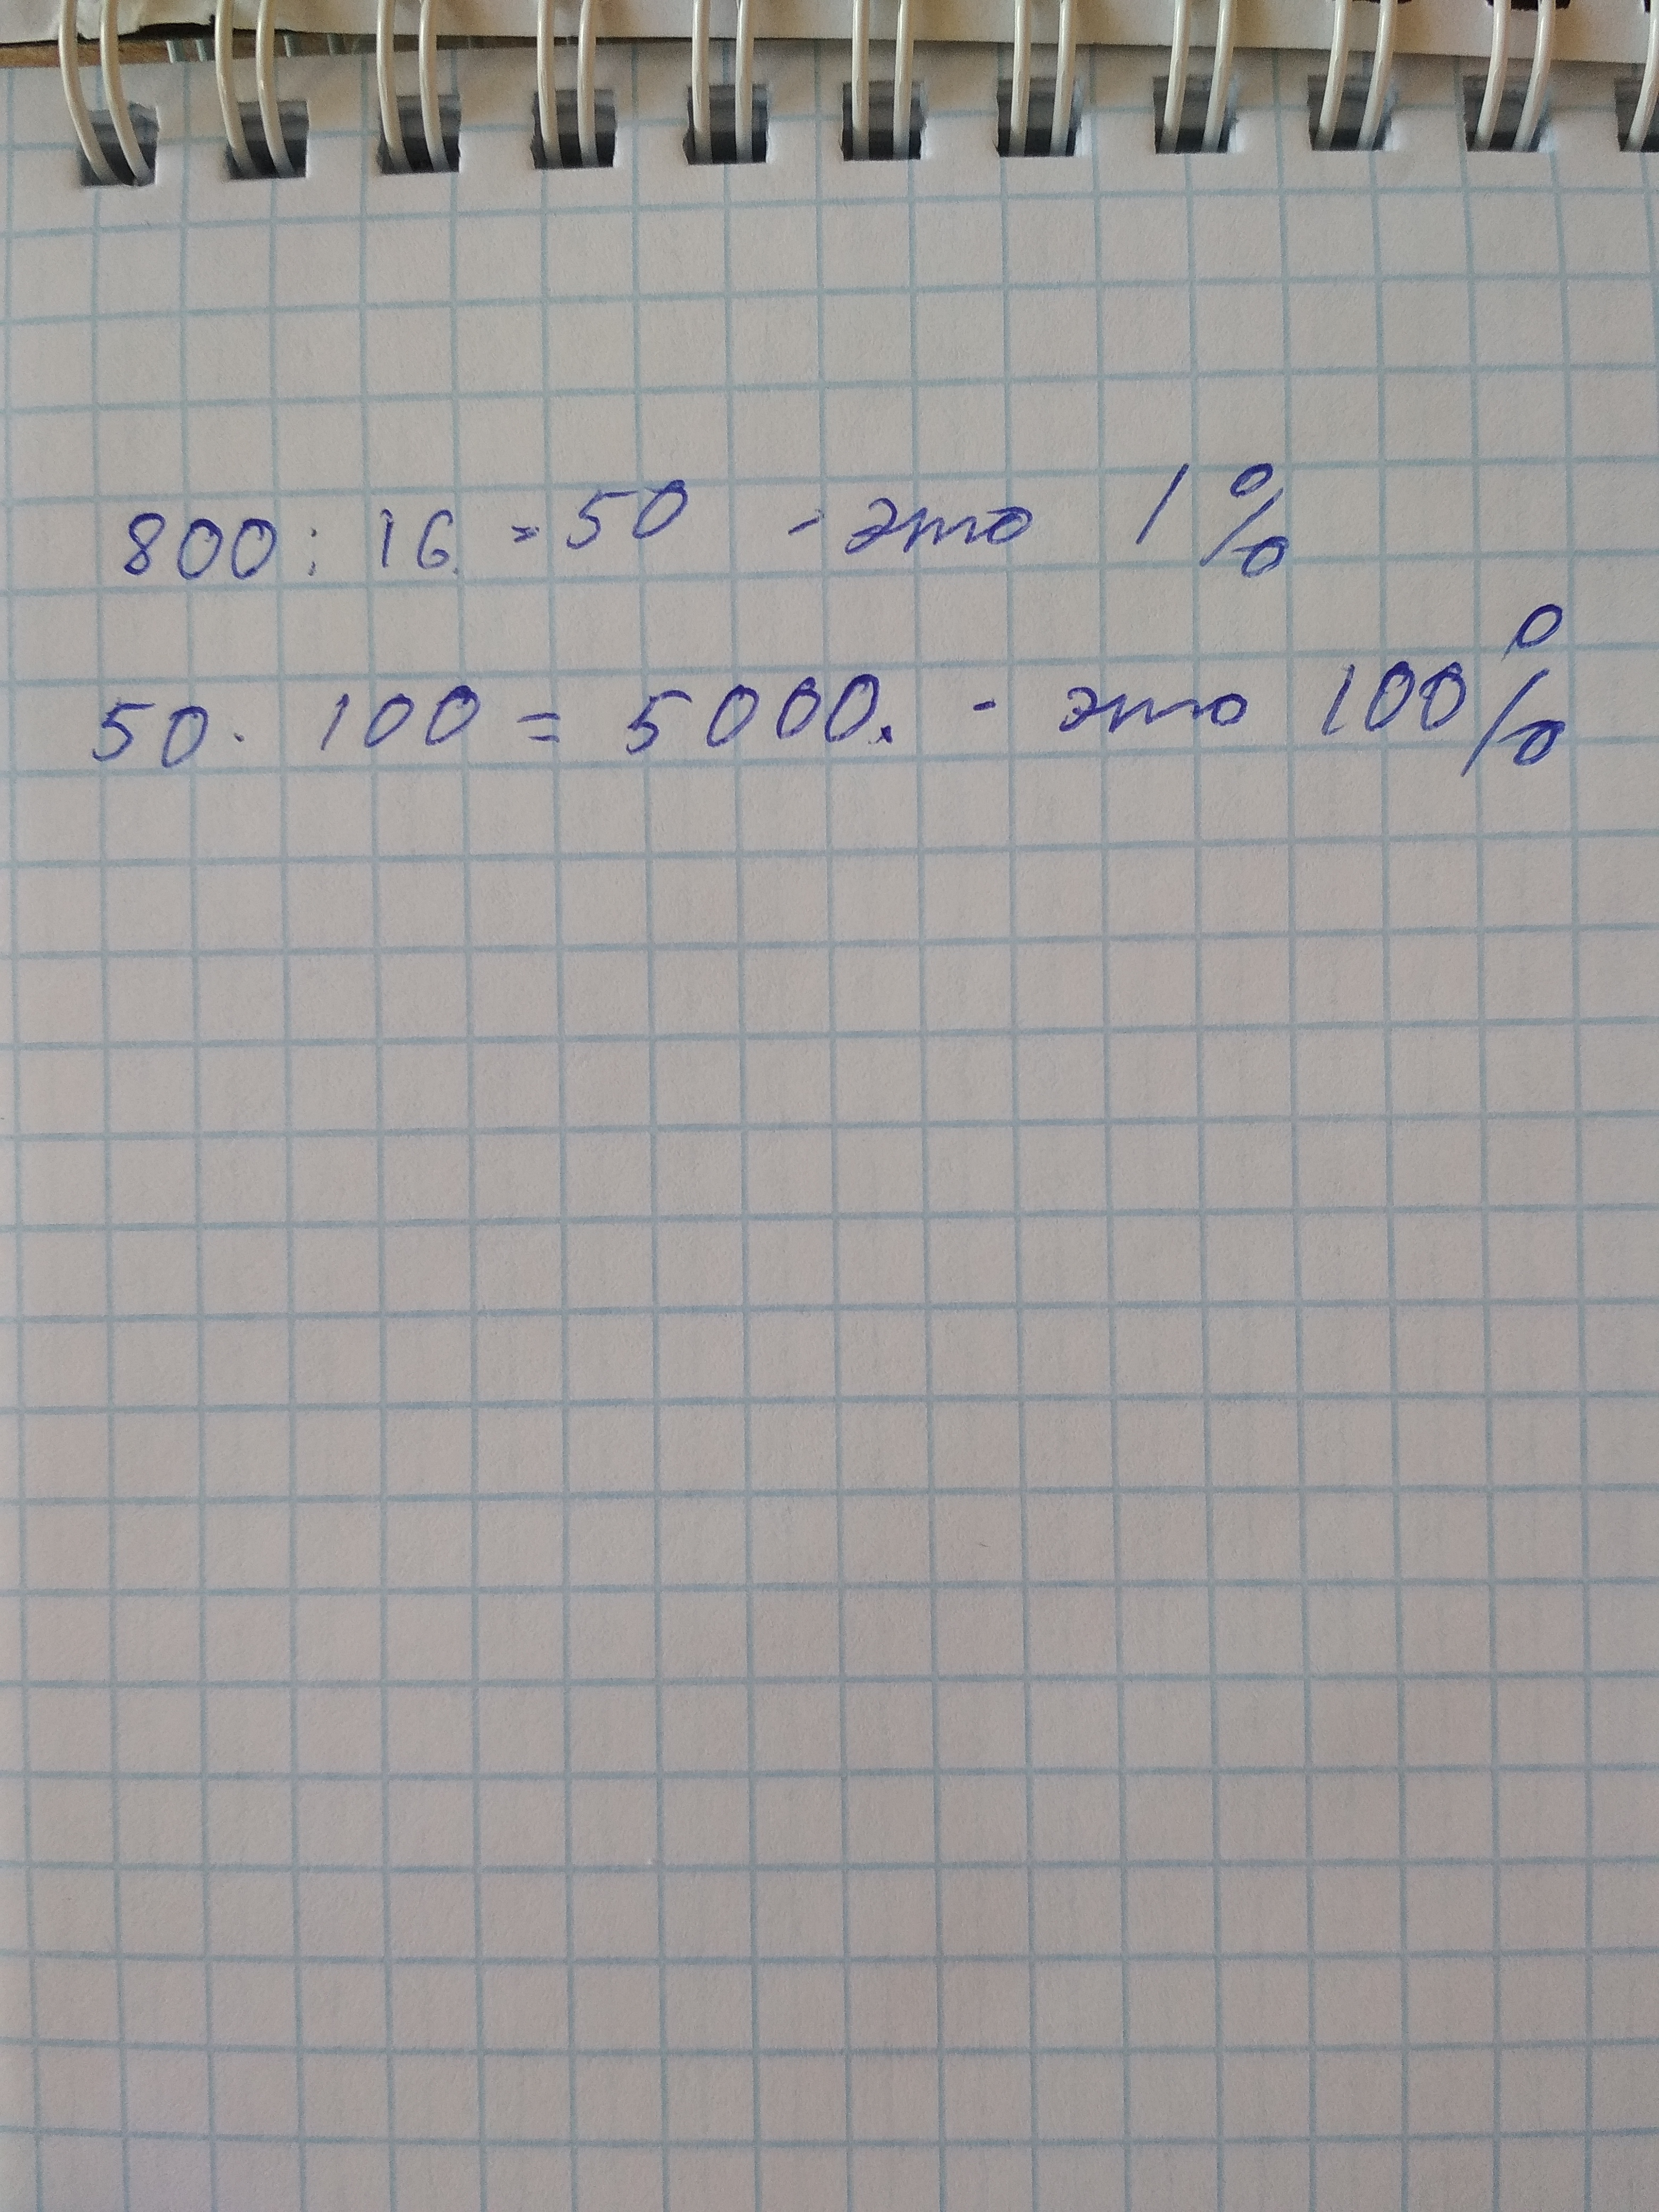 800 : 16 = 50 - это 1 %
50 · 100 = 5000. - это 100 %